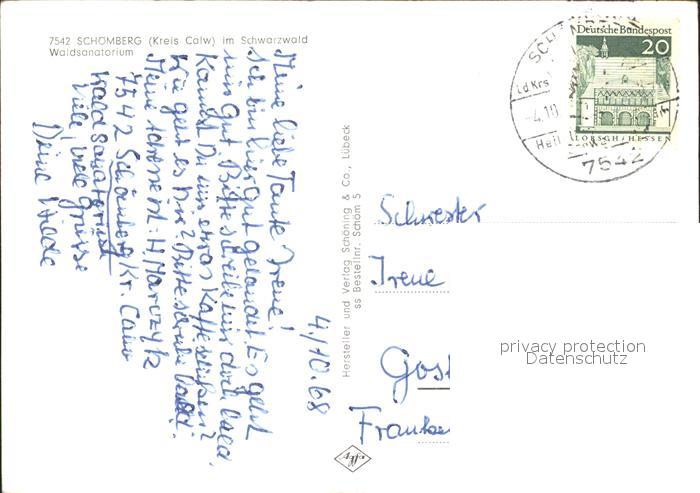 7542 SCHÖMBERG (Kreis Calw) im Schwarzwald
Waldsanatorium
4./10.68
Meine liebe Tante Irene!
Ich bin hier gut gelandet. Es geht
mir gut. Bitte schreibe mir doch bald.
Kannst Du mir etwas Kaffee
Wie geht es Dir? Bitte schreibe bald!
Meine Adresse ist: H. Marczyk
7542 Schömberg Kr. Calw
Waldsanatorium
Viele, viele Grüsse
Deine Heide
Hersteller und Verlag Schöning & Co., Lübeck
ss Bestellnr. Schöm 5
Agfa
Deutsche Bundespost
20
LORSCH/HESSEN
Ld Krs
-4.10
Heil
7542
Schwester
Irene
Gos
Franke
privacy protection
Datenschutz